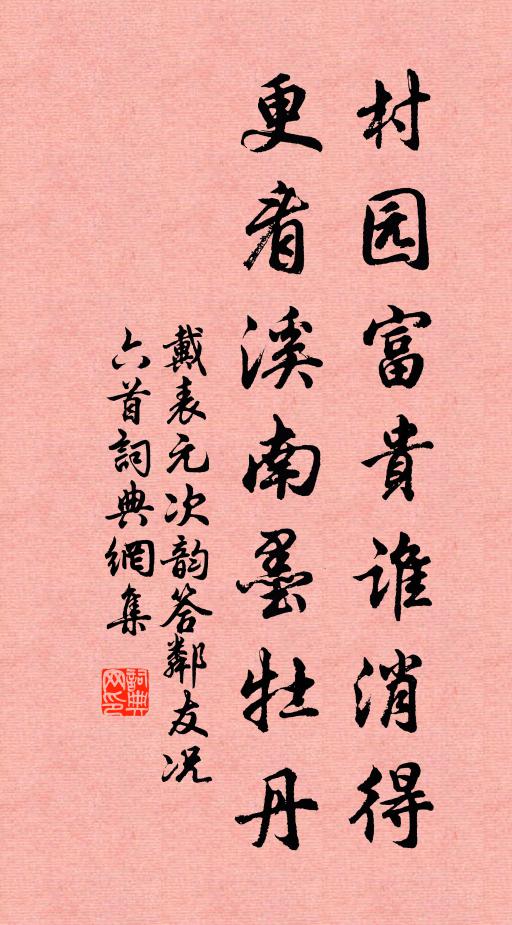 村园富貴谁消得
更看溪南墨牡丹
戴表元次韵答鄰友况
六首詞典網集
詞典网印